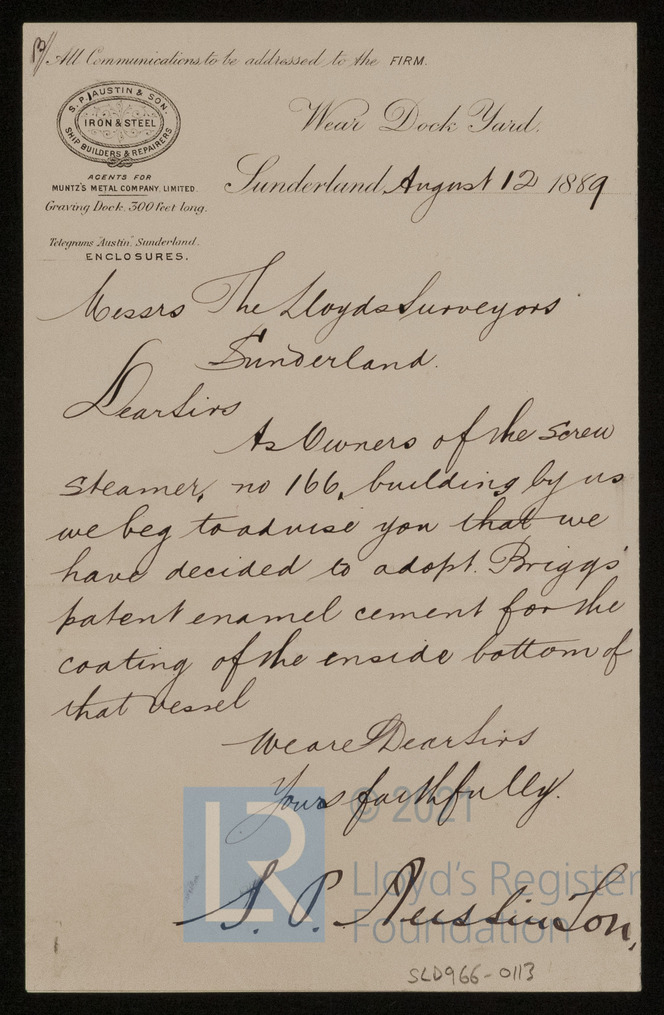 All Communications to be addressed to the FIRM.
S. P. AUSTIN & SON.
IRON & STEEL
SHIP BUILDERS & REPAIRERS
AGENTS FOR
MUNTZ'S METAL COMPANY. LIMITED.
Graving Dock. 300 feet long.
Telegrams "Austin" Sunderland.
ENCLOSURES.
Wear Dock Yard.
Sunderland August 12 1889
Messrs The Lloyds Surveyors
Sunderland.
Dear Sirs
As Owners of the Screw
Steamer, no 166, building by us
we beg to advise you that we
have decided to adopt Briggs'
patent enamel cement for the
coating of the inside bottom of
that vessel
We are Dear Sirs
Yours faithfully.
S. P. Austin Son,
© 2021
LR
Lloyd's Register
Foundation
SLD966-0113